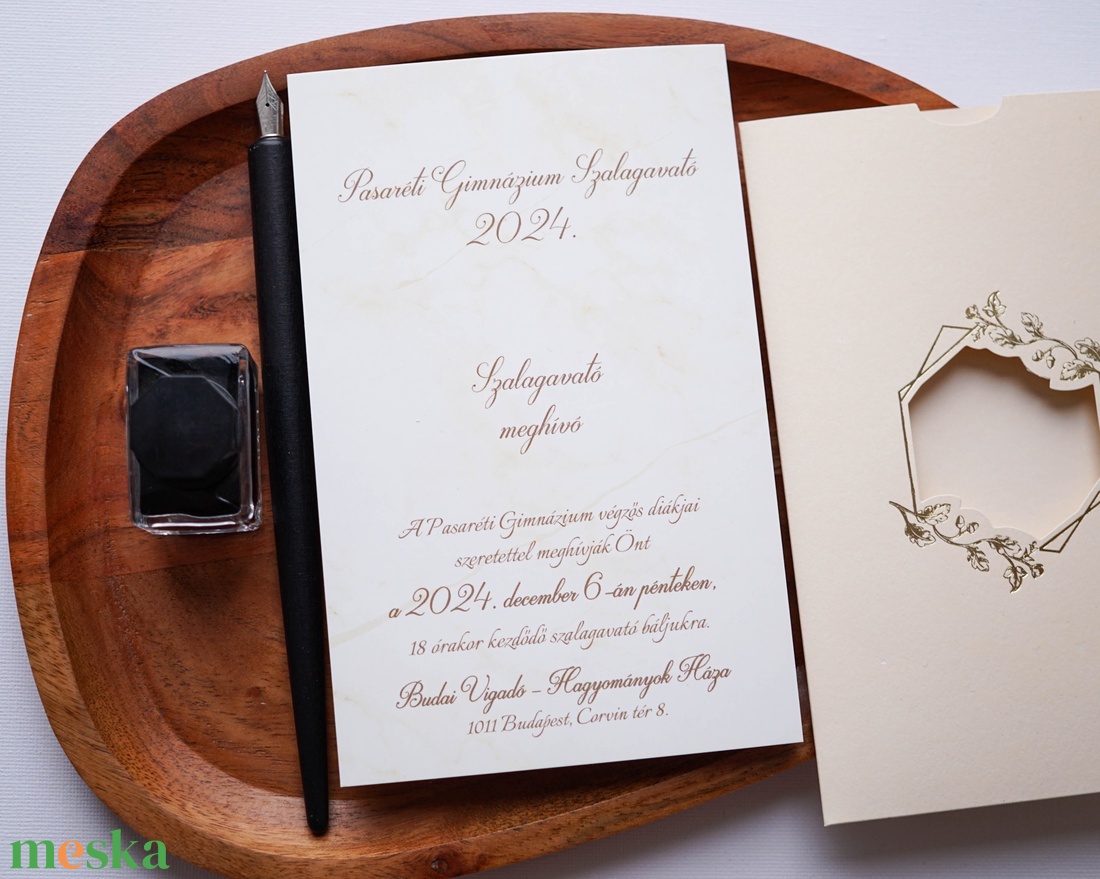 Pasaréti Gimnázium Szalagavató
2024.
Szalagavató
meghívó
A Pasaréti Gimnázium végzős diákjai
szeretettel meghívják Önt
a 2024. december 6-án pénteken,
18 órakor kezdődő szalagavató báljukra.
Budai Vigadó - Hagyományok Háza
1011 Budapest, Corvin tér 8.
meska